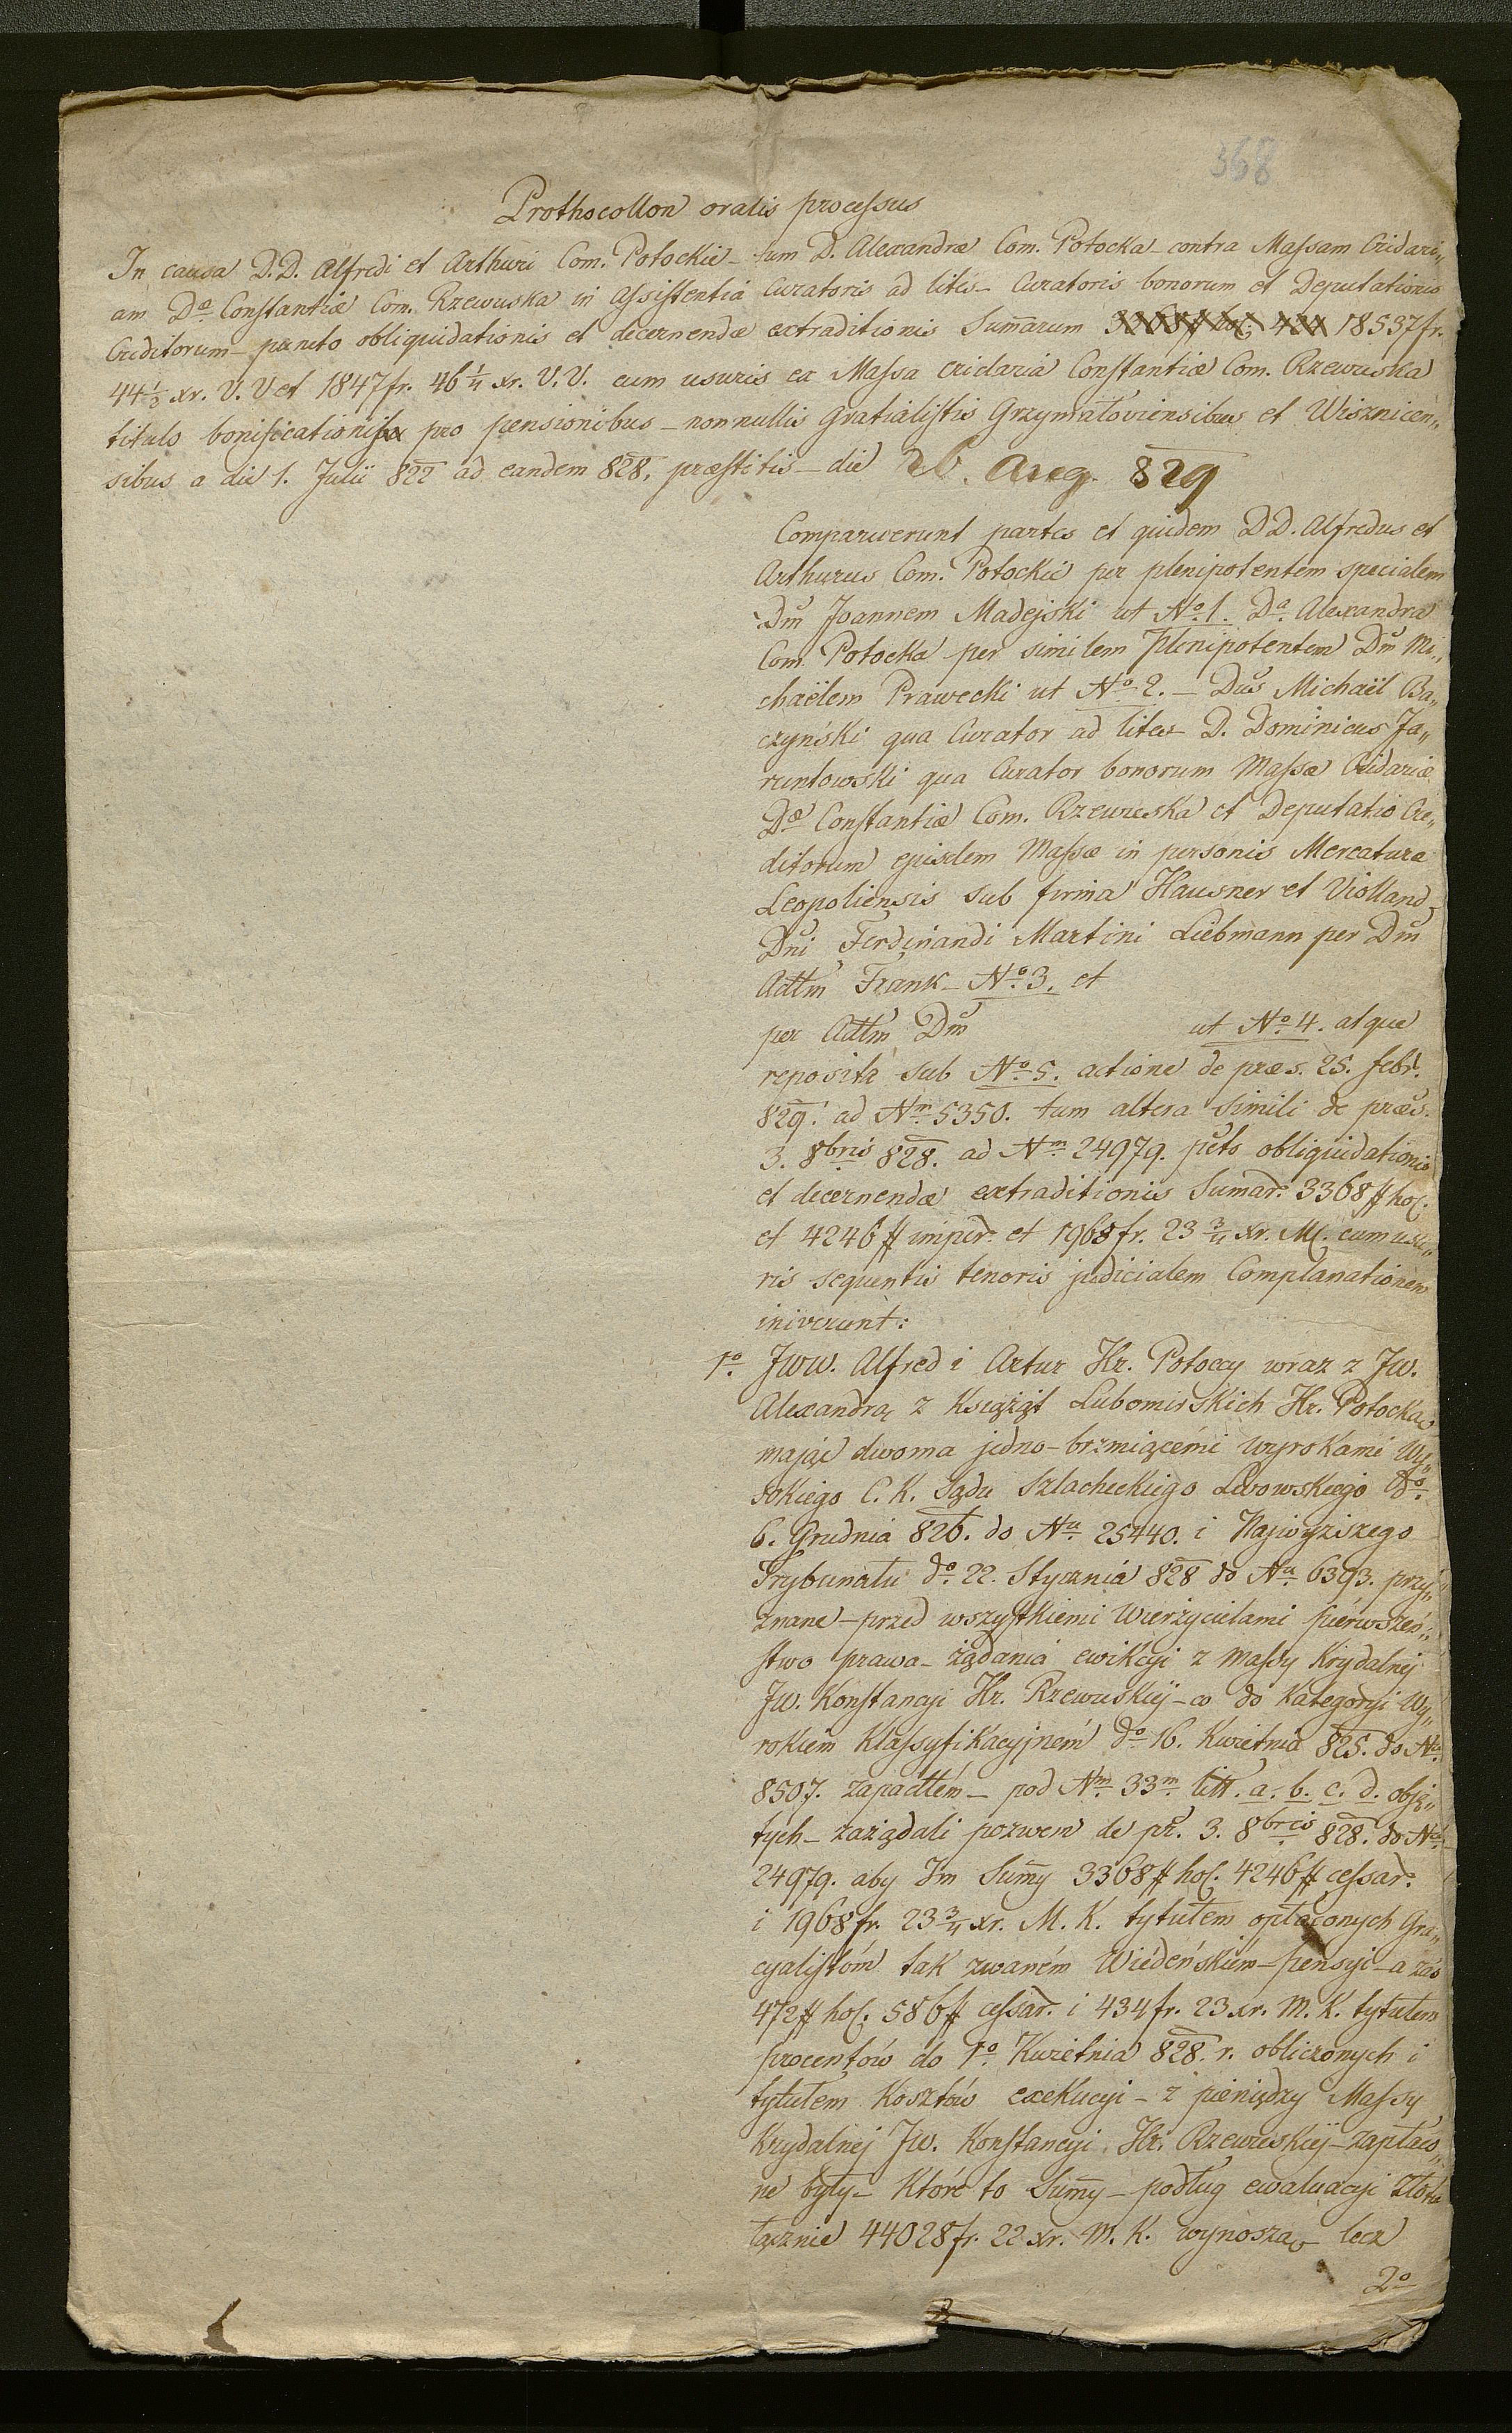 368
Prothocollon oralis processus
In causa D.D. Alfredi et Arthuri Com. Potockie – tum D. Alexandræ Com. Potocka – contra Massam Cridari„
am Dæ Constantiæ Com. Rzewuska in assistentia Curatoris ad lites – Curatoris bonorum et Deputationis
Creditorum – puncto obliquidationis et decernendæ extraditionis Sumarum 18537 fr.
44 1/3 xr. V. V et 1847 fr. 46 1/4 xr. V.V. cum usuris ex Massa cridaria Constantiæ Com. Rzewuska
titulo bonificationis pro pensionibus – nonnullis Gratialistis Grzymałoviensibus et Wisznicen„
sibus a die 1. Julii 822 ad eandem 828. præstitis – die 26. Aug. 829
Comparuerunt partes et quidem DD. Alfredus et
Arthurus Com. Potockie per plenipotentem specialem
Dm Joannem Madejski ut No. 1. Da. Alexandra
Com. Potocka per similem plenipotentem Dm Mi„
chaëlem Prawecki ut No. 2. – Dus Michaël Ba„
czyński qua Curator ad lites – D. Dominicus Ja„
runtowski qua Curator bonorum Massæ Cridariæ
Dæ Constantiæ Com. Rzewuska et Deputatio Cre„
ditorum ejusdem Massæ in personis Mercaturæ
Leopoliensis sub firma Hausner et Violland –
Dni Ferdinandi Martini Liebmann per Dm
Adtm Frank – No. 3. et
per Adtm Dm ut No. 4. atque
reposita sub No. 5. actione de præs. 25. febr.
829. ad Nm. 5350. tum altera simili de præs.
3. 8bris 828. ad Nm. 24979. pcto obliquidationis
et decernendæ extraditionis Sumar. 3368 # hol.
et 4246 # imper. et 1968 fr. 23 3/4 xr. M. cum usu„
ris sequentis tenoris judicialem Complanationem
iniverunt:
1o. JWW. Alfred i Artur Hr. Potoccy wraz z JW.
Alexandrą z Książąt Lubomirskich Hr. Potocką
mając dwoma jedno-brzmiącemi wyrokami Wy„
sokiego C. K. Sądu Szlacheckiego Lwowskiego do.
6. Grudnia 826. do Nu. 25440. i Najwyższego
Trybunału do. 22. Stycznia 828 do Nu. 6393. przy„
znane – przed wszystkiemi Wierzycielami pierwszeń„
stwo prawa – żądania ewikcyi z massy Krydalnej
JW. Konstancyi Hr. Rzewuskiéj – co do Kategoryi Wy„
rokiem Klassyfikacyjném do. 16. Kwietnia 825. do Nu.
8507. zapadłém – pod Nm. 33m. litt. a. b. c. d. obję„
tych – zażądali pozwem de pr. 3. 8bris 828. do Nu.
24979. aby Im Sumy 3368 # hol. 4246 # cessar.
i 1968 fr. 23 3/4 xr. M. K. tytułem opłaconych Gra„
cyalistóm tak zwaném Wiédeńskiém – pensyi – a zaś
472 # hol. 586 # cessar. i 434 fr. 23 xr. M. K. tytułem
procentów do 1o. Kwietnia 828. r. obliczonych i
tytułem Kosztów exekucyi – z pieniędzy Massy
Krydalnéj JW. Konstancyi Hr. Rzewuskiéj – zapłaco„
ne były – Któré to Sumy – podług ewaluacyi złota
łącznie 44028 fr. 22 xr. M. K. wynoszą – lecz
2o